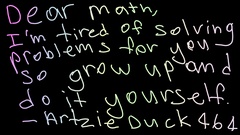 Dear math,
I'm tired of solving
problems for you
so grow up and
do it yourself.
- Artzie Duck 464